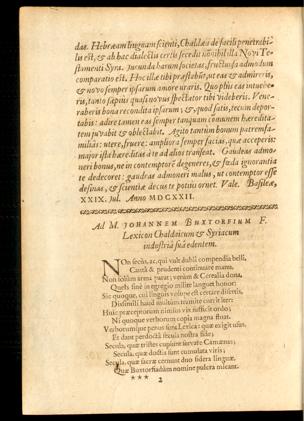 dat. Hebræam linguam scienti, Chaldæa de facili penetrabi-
lis est, & ab hac dialectis certis secedit Novi Te-
stamenti Syra. Jucunda harum societas, fructuosa admodum
comparatio est. Hoc illæ tibi præstabunt, ut eas & admireris,
& novo semper ipsarum amore uraris. Quo plus eas intuebe-
ris, tanto sæpius quasi novus spectator tibi videberis. Vene-
raberis bona recondita ipsarum; &, quod satis, tecum depor-
tabis: adire tamen eas semper tanquam communem hæredita-
tem juvabit & oblectabit. Agito tantum bonum patremfa-
miliâs: utere, fruere: ampliora semper facias, quæ acceperis:
major ista hæreditas à te ad alios transeat. Gaudeas admo-
neri bonus, ne in contemptorē degeneres, & fœda ignorantia
te dedecoret: gaudeas admoneri malus, ut contemptor esse
desinas, & scientiæ decus te potius ornet. Vale. Basileæ,
XXIX. Jul. Anno MDCXXII.
Ad M. JOHANNEM BUXTORFIUM F.
Lexicon Chaldaicum & Syriacum
industriâ suâ edentem.
NOn secus, ac, qui vult dubii compendia belli,
Cauta & prudenti continuare manu,
Non solùm arma parat; verùm & Cerealia dona,
Queis sine in egregio milite languet honor:
Sic quoque, cui linguis volupe est certare disertis,
Dissimili haud multùm tramite currit iter:
Huic præceptorum nimius vix sufficit ordo;
Ni quoque verborum copia magna fluat.
Verborumque penus sunt Lexica: quæ exigit usus,
Et dant perdocta secula nostra fide;
Secula, quæ tristes cupiunt servare Camœnas;
Secula, quæ doctis sunt cumulata viris;
Secula, quæ sacræ cernunt duo sidera linguæ,
Quæ Buxtorfiadûm nomine pulcra micant.
*** 2